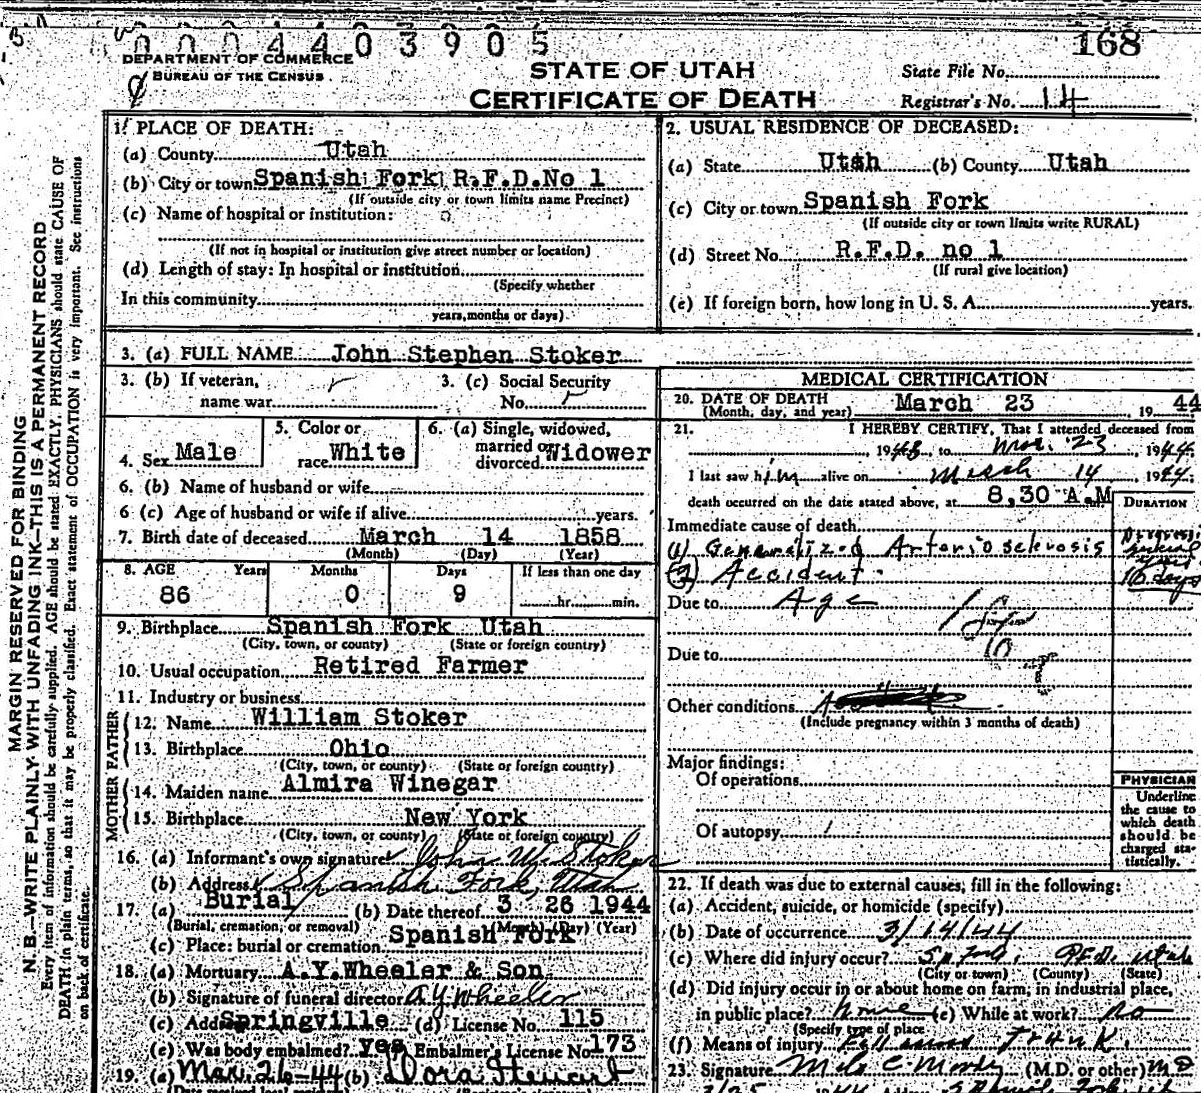 0 0 0 4 4 0 3 9 0 5
168
DEPARTMENT OF COMMERCE
BUREAU OF THE CENSUS
STATE OF UTAH
CERTIFICATE OF DEATH
State File No.
Registrar's No. 14
MARGIN RESERVED FOR BINDING
N. B.—WRITE PLAINLY WITH UNFADING INK—THIS IS A PERMANENT RECORD
Every item of information should be carefully supplied. AGE should be stated EXACTLY. PHYSICIANS should state CAUSE OF
DEATH in plain terms, so that it may be properly classified. Exact statement of OCCUPATION is very important. See instructions
on back of certificate.
1. PLACE OF DEATH:
(a) County Utah
(b) City or town Spanish Fork R.F.D.No 1
(If outside city or town limits name Precinct)
(c) Name of hospital or institution:
(If not in hospital or institution give street number or location)
(d) Length of stay: In hospital or institution
(Specify whether
In this community
years, months or days)
2. USUAL RESIDENCE OF DECEASED:
(a) State Utah (b) County Utah
(c) City or town Spanish Fork
(If outside city or town limits write RURAL)
(d) Street No. R.F.D. no 1
(If rural give location)
(e) If foreign born, how long in U. S. A. years.
3. (a) FULL NAME John Stephen Stoker
3. (b) If veteran, 3. (c) Social Security
name war No.
4. Sex Male
5. Color or
race White
6. (a) Single, widowed,
married or
divorced. Widower
6. (b) Name of husband or wife
6 (c) Age of husband or wife if alive years.
7. Birth date of deceased March 14 1858
(Month) (Day) (Year)
8. AGE Years Months Days If less than one day
86 0 9 hr. min.
9. Birthplace Spanish Fork Utah
(City, town, or county) (State or foreign country)
10. Usual occupation Retired Farmer
11. Industry or business
FATHER
12. Name William Stoker
13. Birthplace Ohio
(City, town, or county) (State or foreign country)
MOTHER
14. Maiden name Almira Winegar
15. Birthplace New York
(City, town, or county) (State or foreign country)
16. (a) Informant's own signature John W. Stoker
(b) Address Spanish Fork, Utah
17. (a) Burial (b) Date thereof 3 26 1944
(Burial, cremation, or removal) (Month) (Day) (Year)
(c) Place: burial or cremation Spanish Fork
18. (a) Mortuary A.Y.Wheeler & Son
(b) Signature of funeral director A Y Wheeler
(c) Address Springville (d) License No. 115
(e) Was body embalmed? yes Embalmer's License No 173
19. (a) Mar. 26-44 (b) Dora Stewart
MEDICAL CERTIFICATION
20. DATE OF DEATH March 23 19 44
(Month, day, and year)
21. I HEREBY CERTIFY, That I attended deceased from
19 to Mar. 23, 1944.
I last saw him alive on March 14 1944;
death occurred on the date stated above, at 8,30 A.M
DURATION
Immediate cause of death
(1) Generalized Arteriosclerosis
(2) Accident. 10 days
Due to Age
Due to
Other conditions
(Include pregnancy within 3 months of death)
Major findings:
Of operations
Of autopsy
PHYSICIAN
Underline
the cause to
which death
should be
charged sta-
tistically.
22. If death was due to external causes, fill in the following:
(a) Accident, suicide, or homicide (specify)
(b) Date of occurrence 3/14/44
(c) Where did injury occur? Sp. Fork. Utah
(City or town) (County) (State)
(d) Did injury occur in or about home on farm, in industrial place,
in public place? home (e) While at work? no
(Specify type of place
(f) Means of injury Fell
23. Signature Milo C Moody (M.D. or other) M D